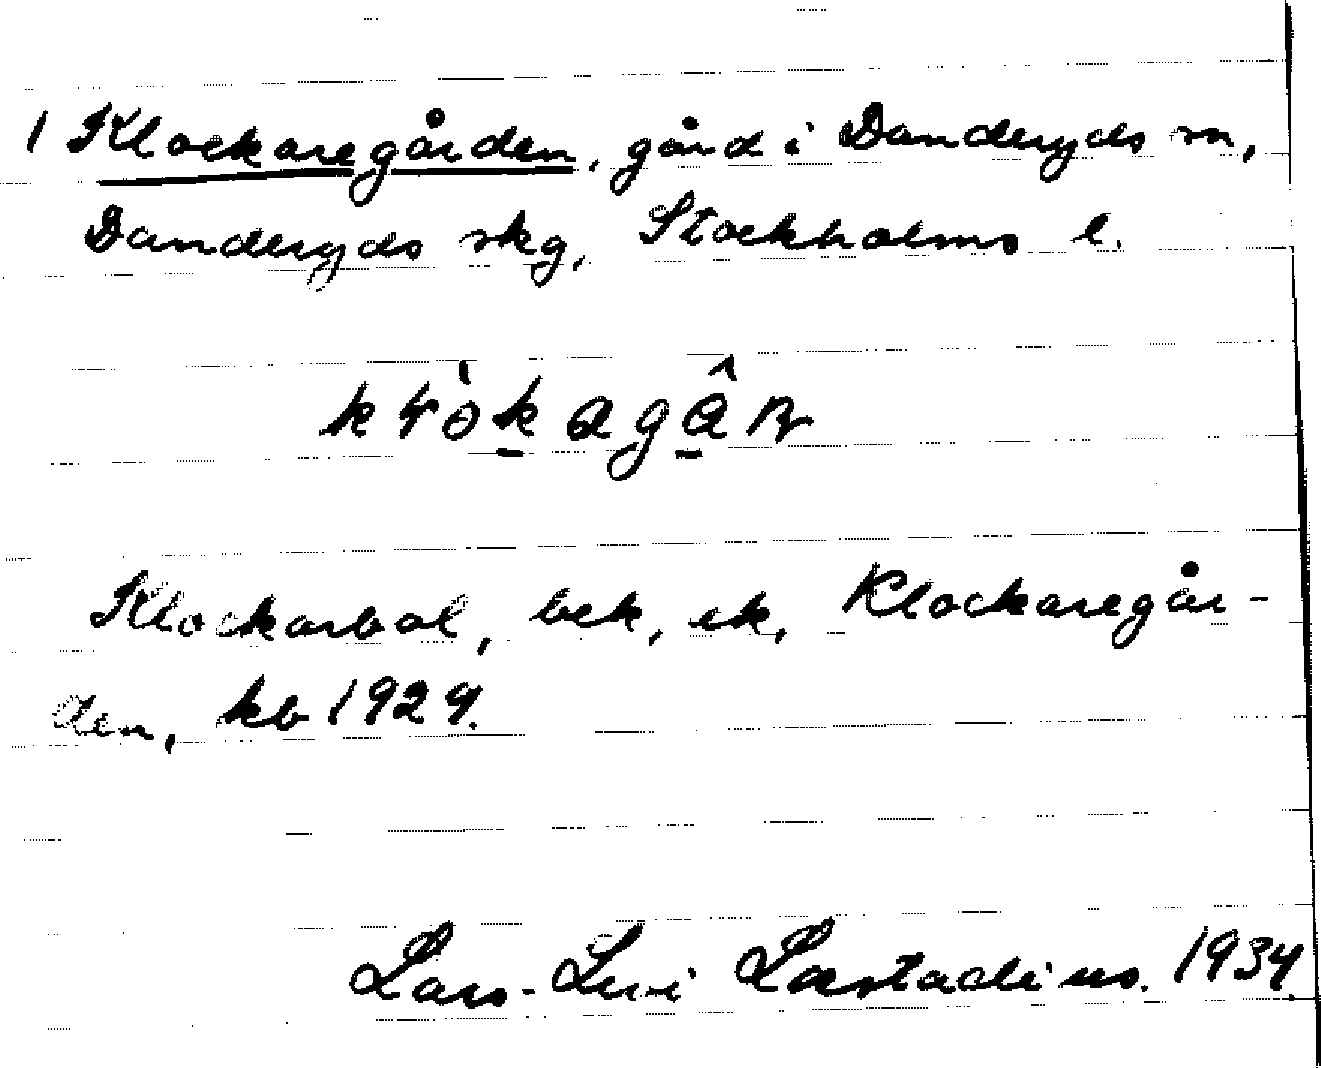 1 Klockaregården, gård i Danderyds sn,
Danderyds skg, Stockholms l.
Klockarbol, bek, ek, Klockaregår-
den, kb 1929.
Lars-Levi Læstadius. 1934.